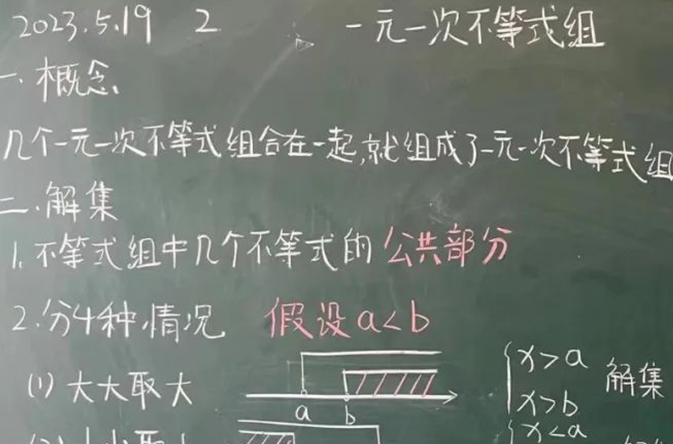 2023.5.19 2 一元一次不等式组
一、概念
几个一元一次不等式组合在一起,就组成了一元一次不等式组
二、解集
1、不等式组中几个不等式的公共部分
2.分4种情况 假设a<b
(1)大大取大 a b { x>a x>b 解集
x<a